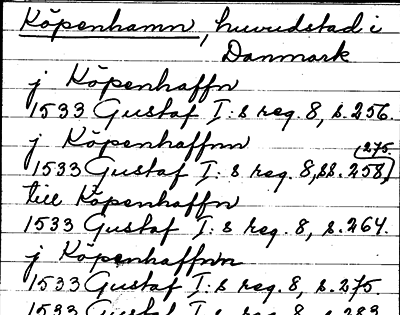 Köpenhamn, huvudstad i
Danmark
j Köpenhaffn
1533 Gustaf I:s reg. 8, s. 256.
j Köpenhaffnn
275.
1533 Gustaf I:s reg. 8, ss. 258,
till Köpenhaffn
1533 Gustaf I:s reg. 8, s. 264.
j Köpenhaffnn
1533 Gustaf I:s reg. 8, s. 275.
1533 Gustaf I:s reg. 8, s. 283.